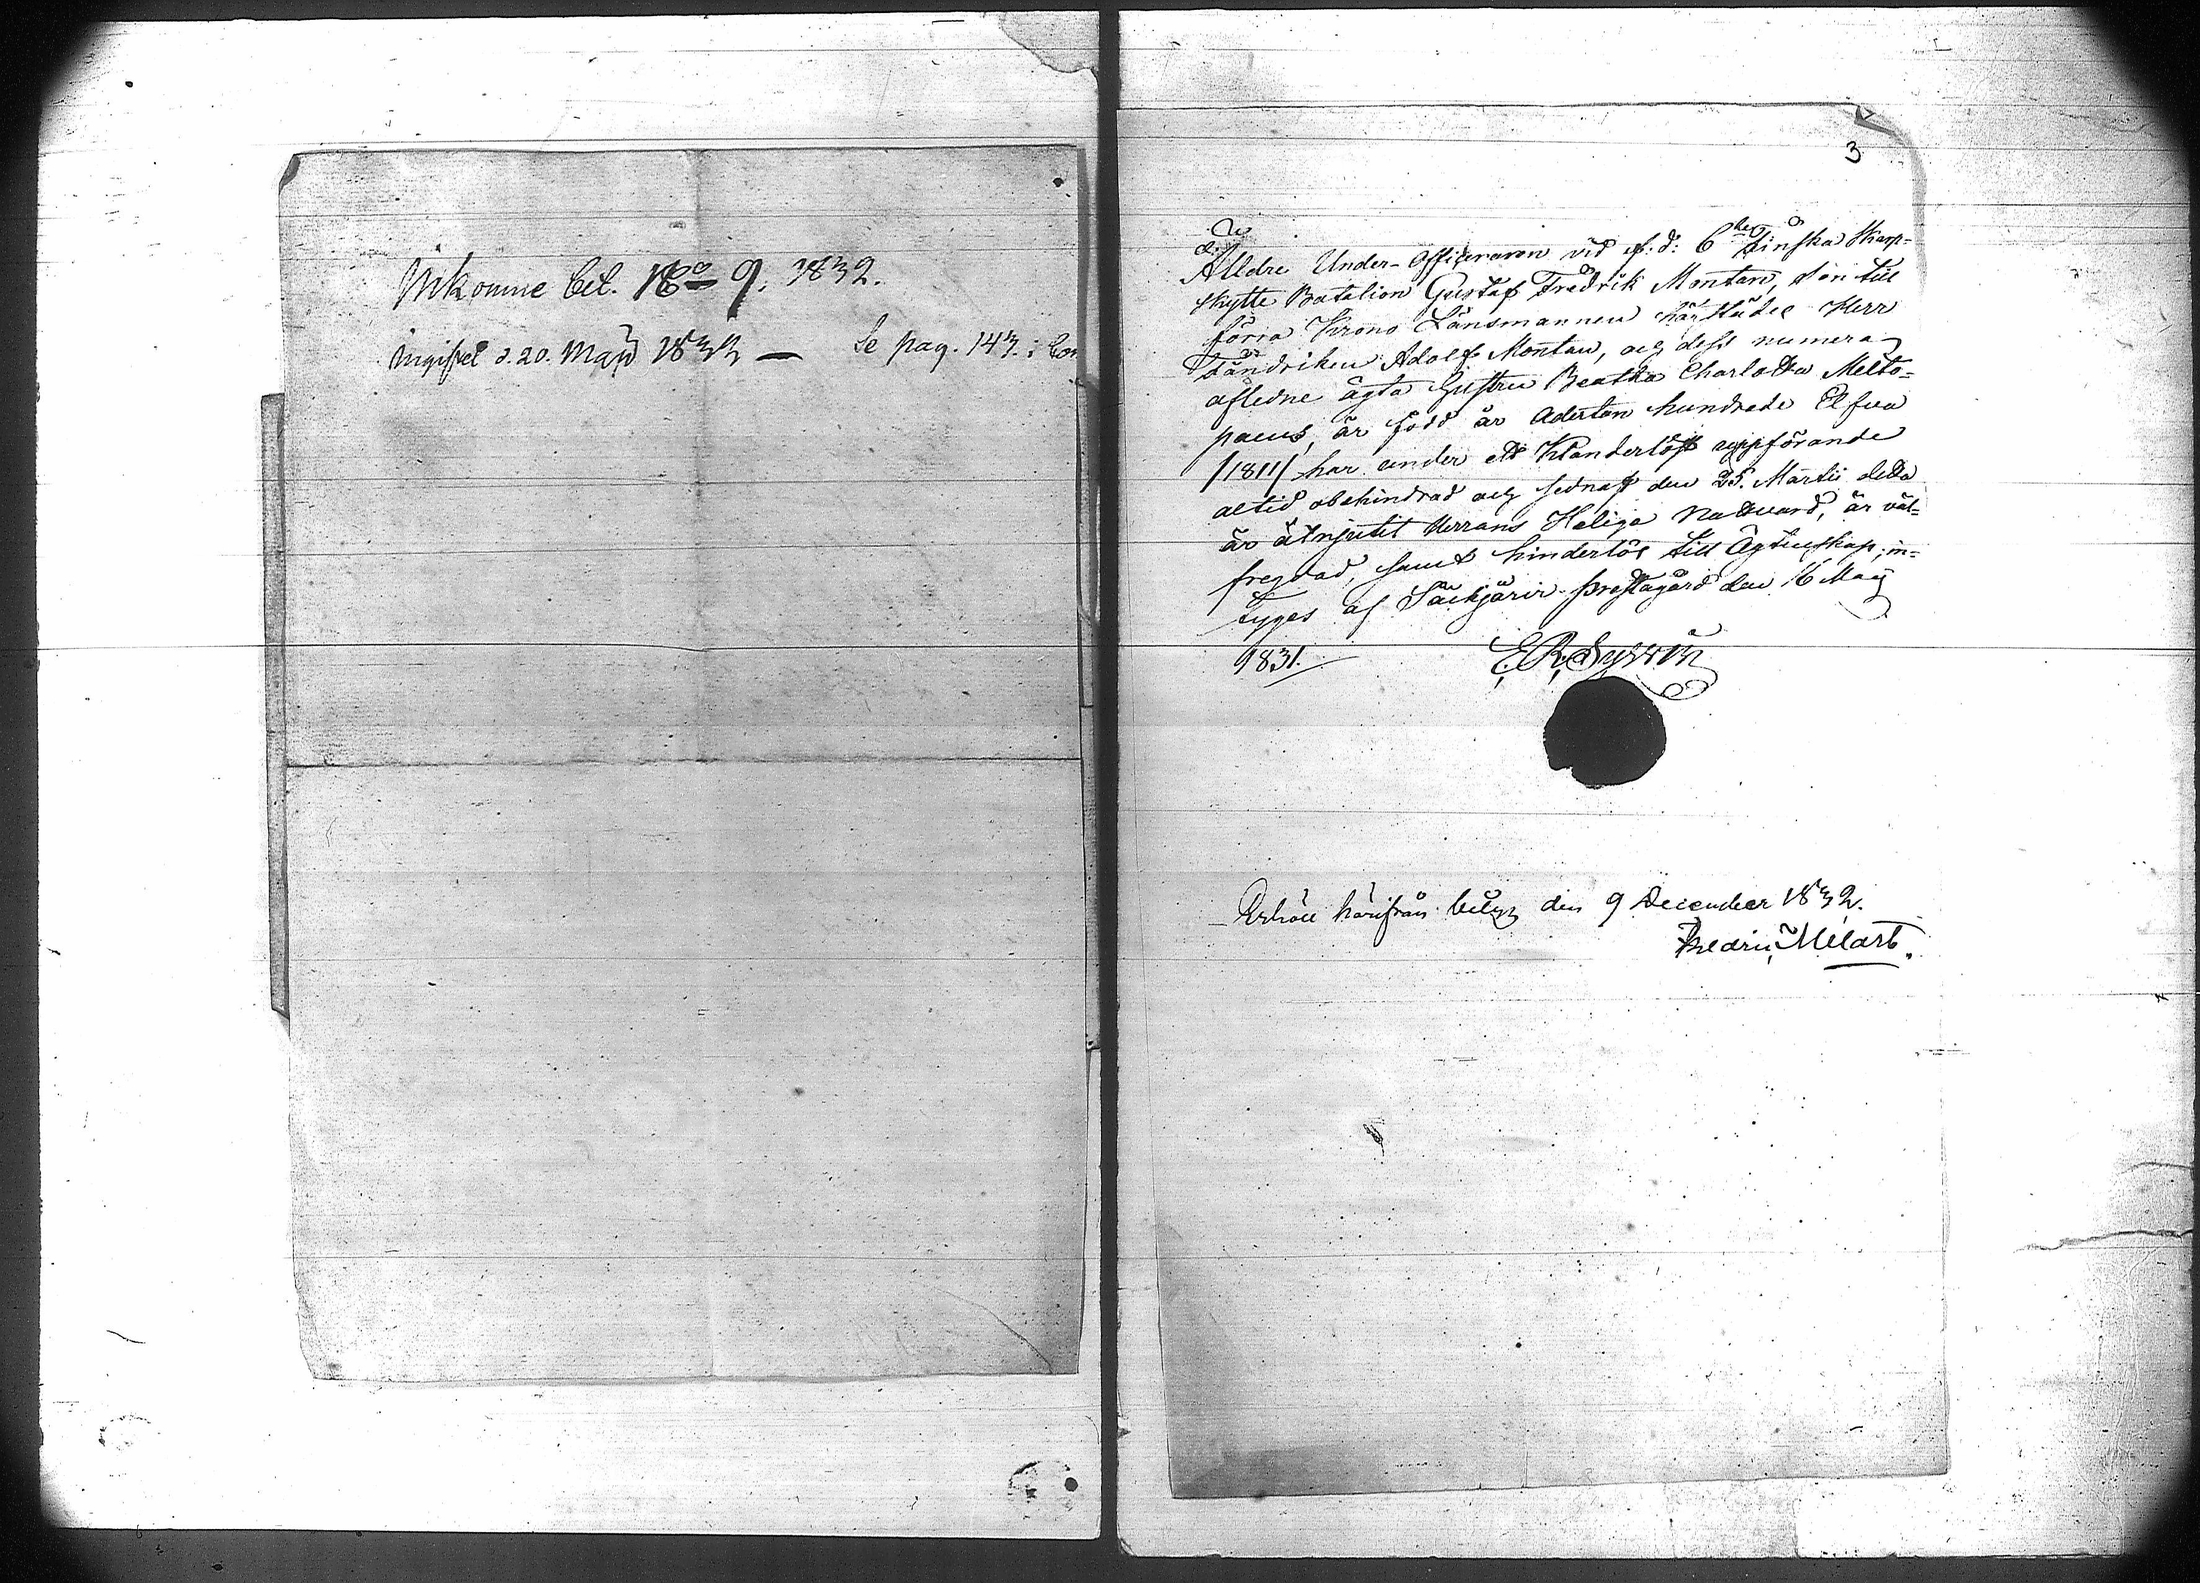 Inkomne bet. No 9. 1832.
ingifvet d. 20. Maij 1833 — Se pag. 143. i
3
Älldre Under-officeraren vid f.d: 6te Finska Skarp=
skytte Batalion Gustaf Fredrik Montan, son till
förra Krono Länsmannen härstädes Herr
Fändriken Adolf Montan, och dess numera
afledne ägta Hustru Beatha Charlotta Melto=
paeus, är född år Aderton hundrade Elfva
/1811/ har under ett Klanderlöst uppförande
altid obehindrad och sednast den 25. Martii detta
år åtnjutit Herrans Heliga Nattvard, är väl=
fregdad, samt hinderlös till Ägtenskap; in=
tyges af Säckjärvi prestagård den 16 Maij
1831.
Erhöll härifrån betyg den 9 December 1832.
Fredric Melart.